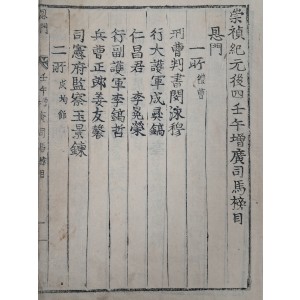 崇禎紀元後四壬午增廣司馬榜目
恩門
一所 禮曹
刑曹判書閔泳穆
行大護軍成彝鎬
仁昌君 李晃榮
行副護軍李鎬哲
兵曹正郎姜友馨
司憲府監察玉景鍊
二所 成均館
恩門 壬午增廣司馬榜目 一